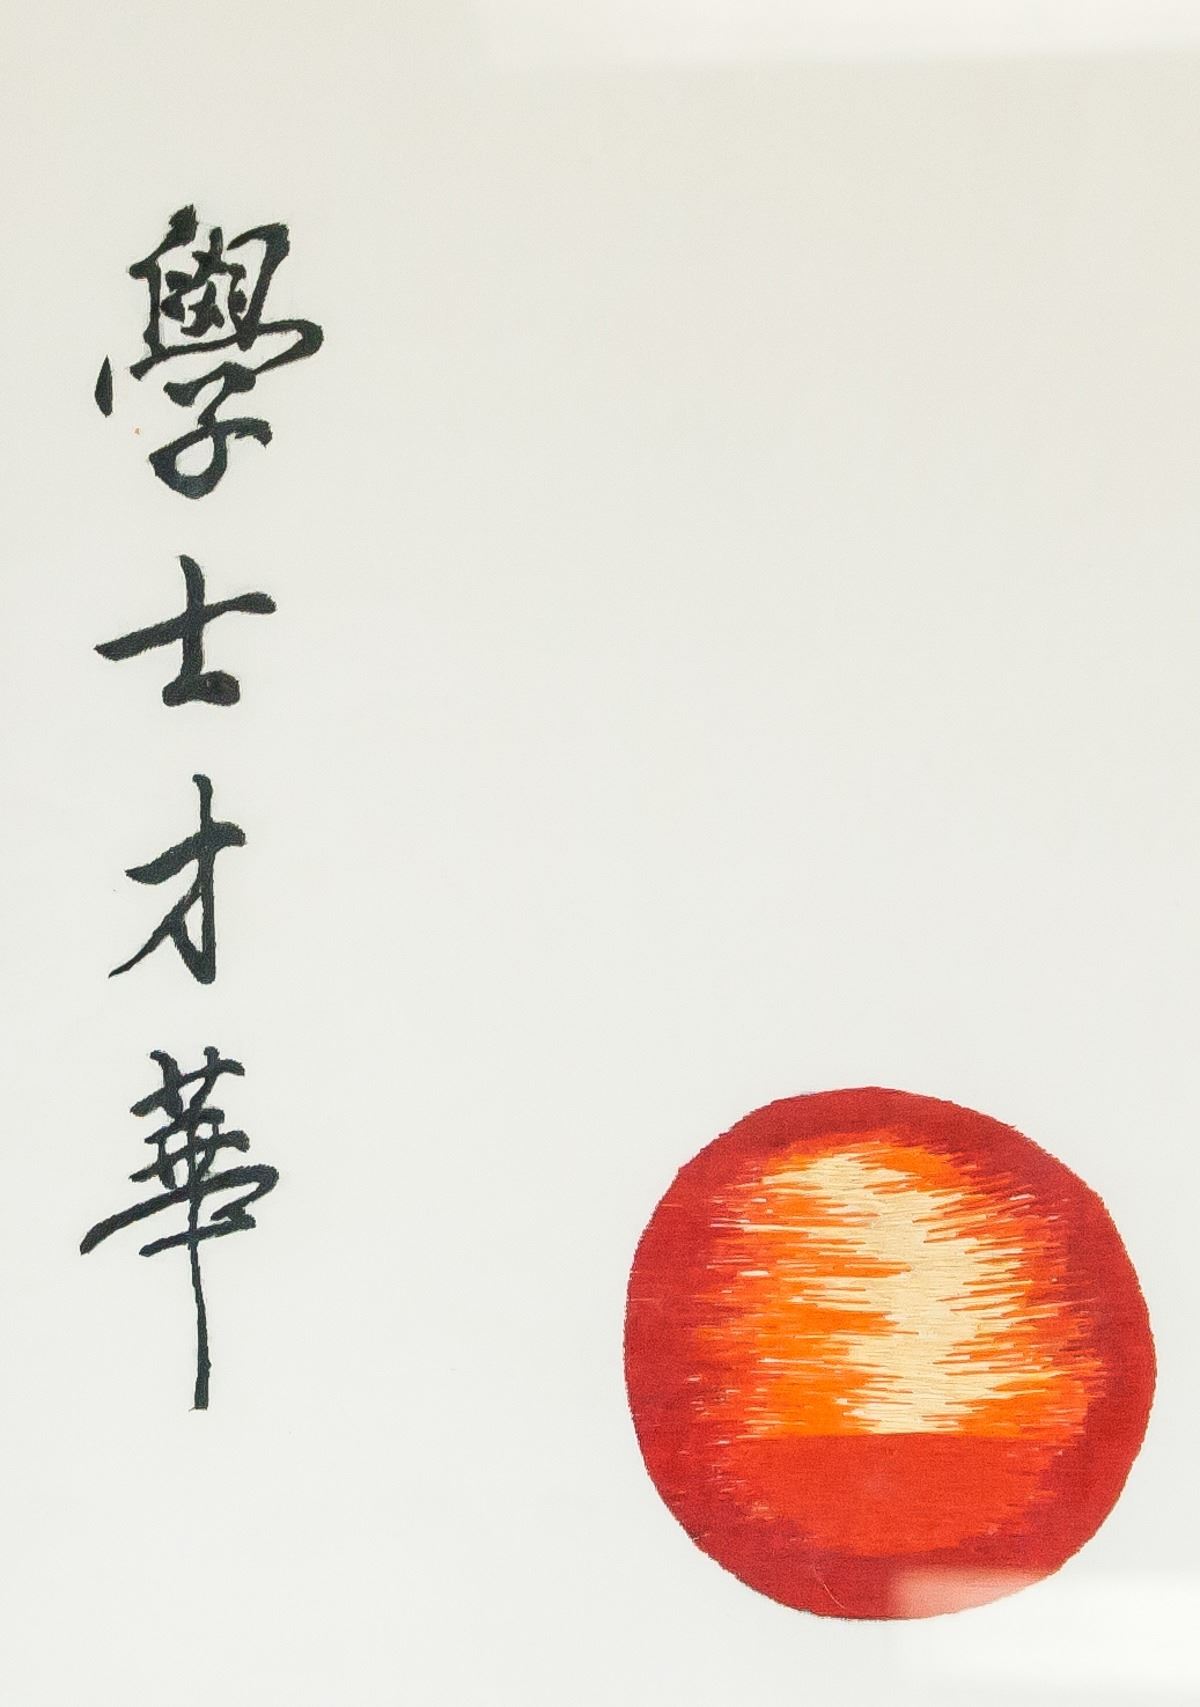 學士才華